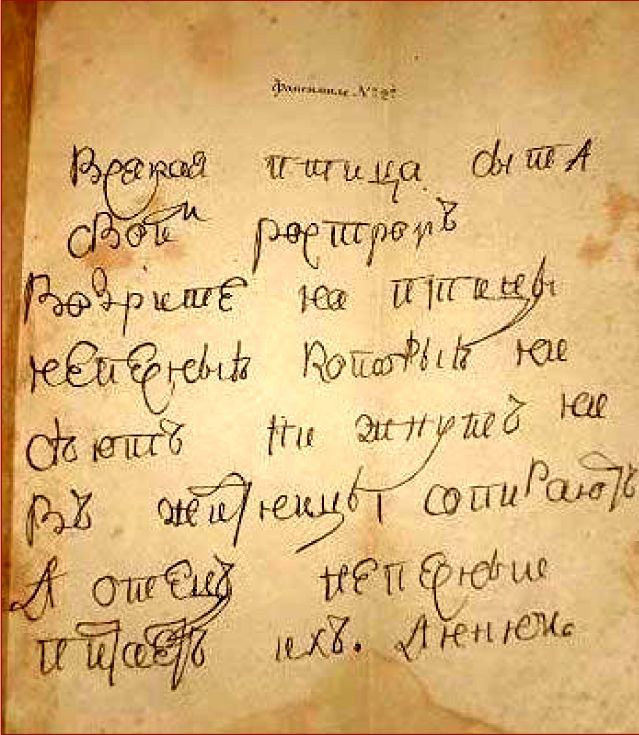 Факсимиле №
Всякая птица сыта
свой
Возрите на птицы
непесныѣ которыѣ не
сѣютъ ни жнутъ не
въ житницы сопираютъ
А отецъ непесные
питаетъ ихъ.